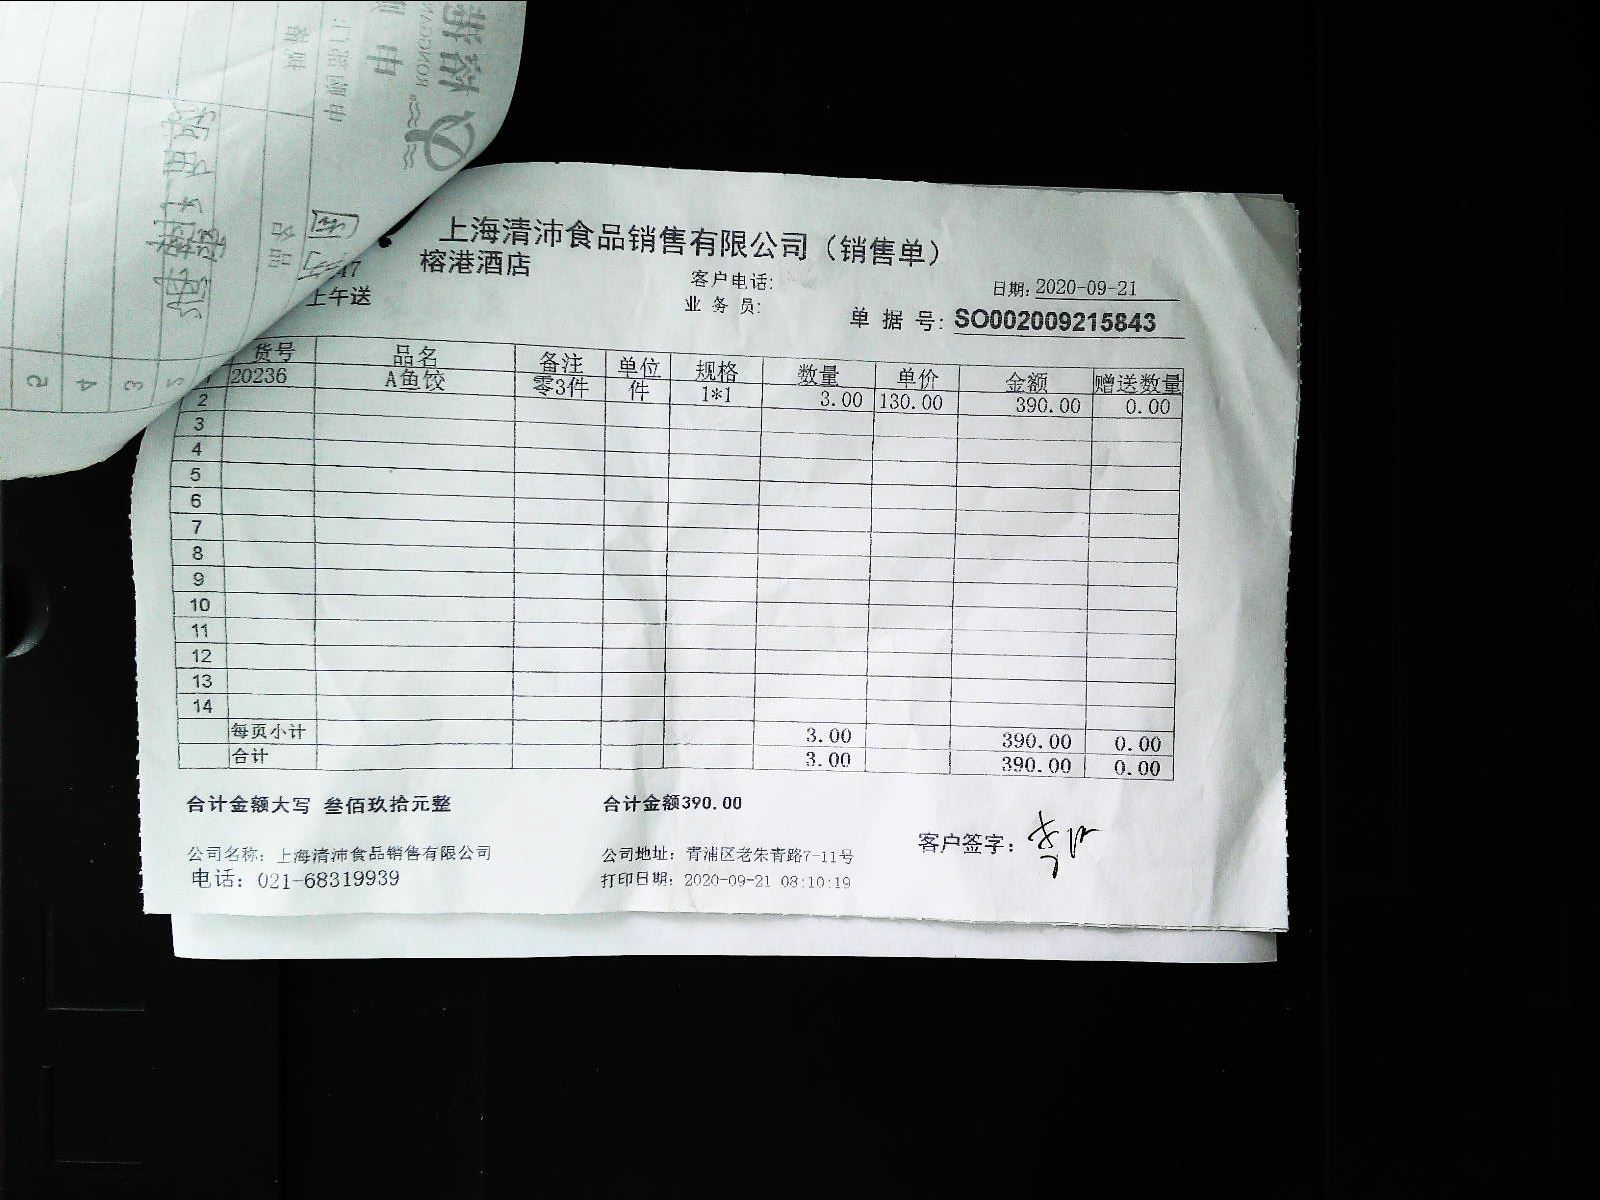 上海清沛食品销售有限公司（销售单）
榕港酒店
客户电话:
日期: 2020-09-21
上午送
业 务 员:
单 据 号: SO002009215843
货号 品名 备注 单位 规格 数量 单价 金额 赠送数量
1 20236 A鱼饺 零3件 件 1*1 3.00 130.00 390.00 0.00
2
3
4
5
6
7
8
9
10
11
12
13
14
每页小计 3.00 390.00 0.00
合计 3.00 390.00 0.00
合计金额大写 叁佰玖拾元整 合计金额390.00
客户签字:
公司名称: 上海清沛食品销售有限公司 公司地址: 青浦区老朱青路7-11号
电话: 021-68319939 打印日期: 2020-09-21 08:10:19